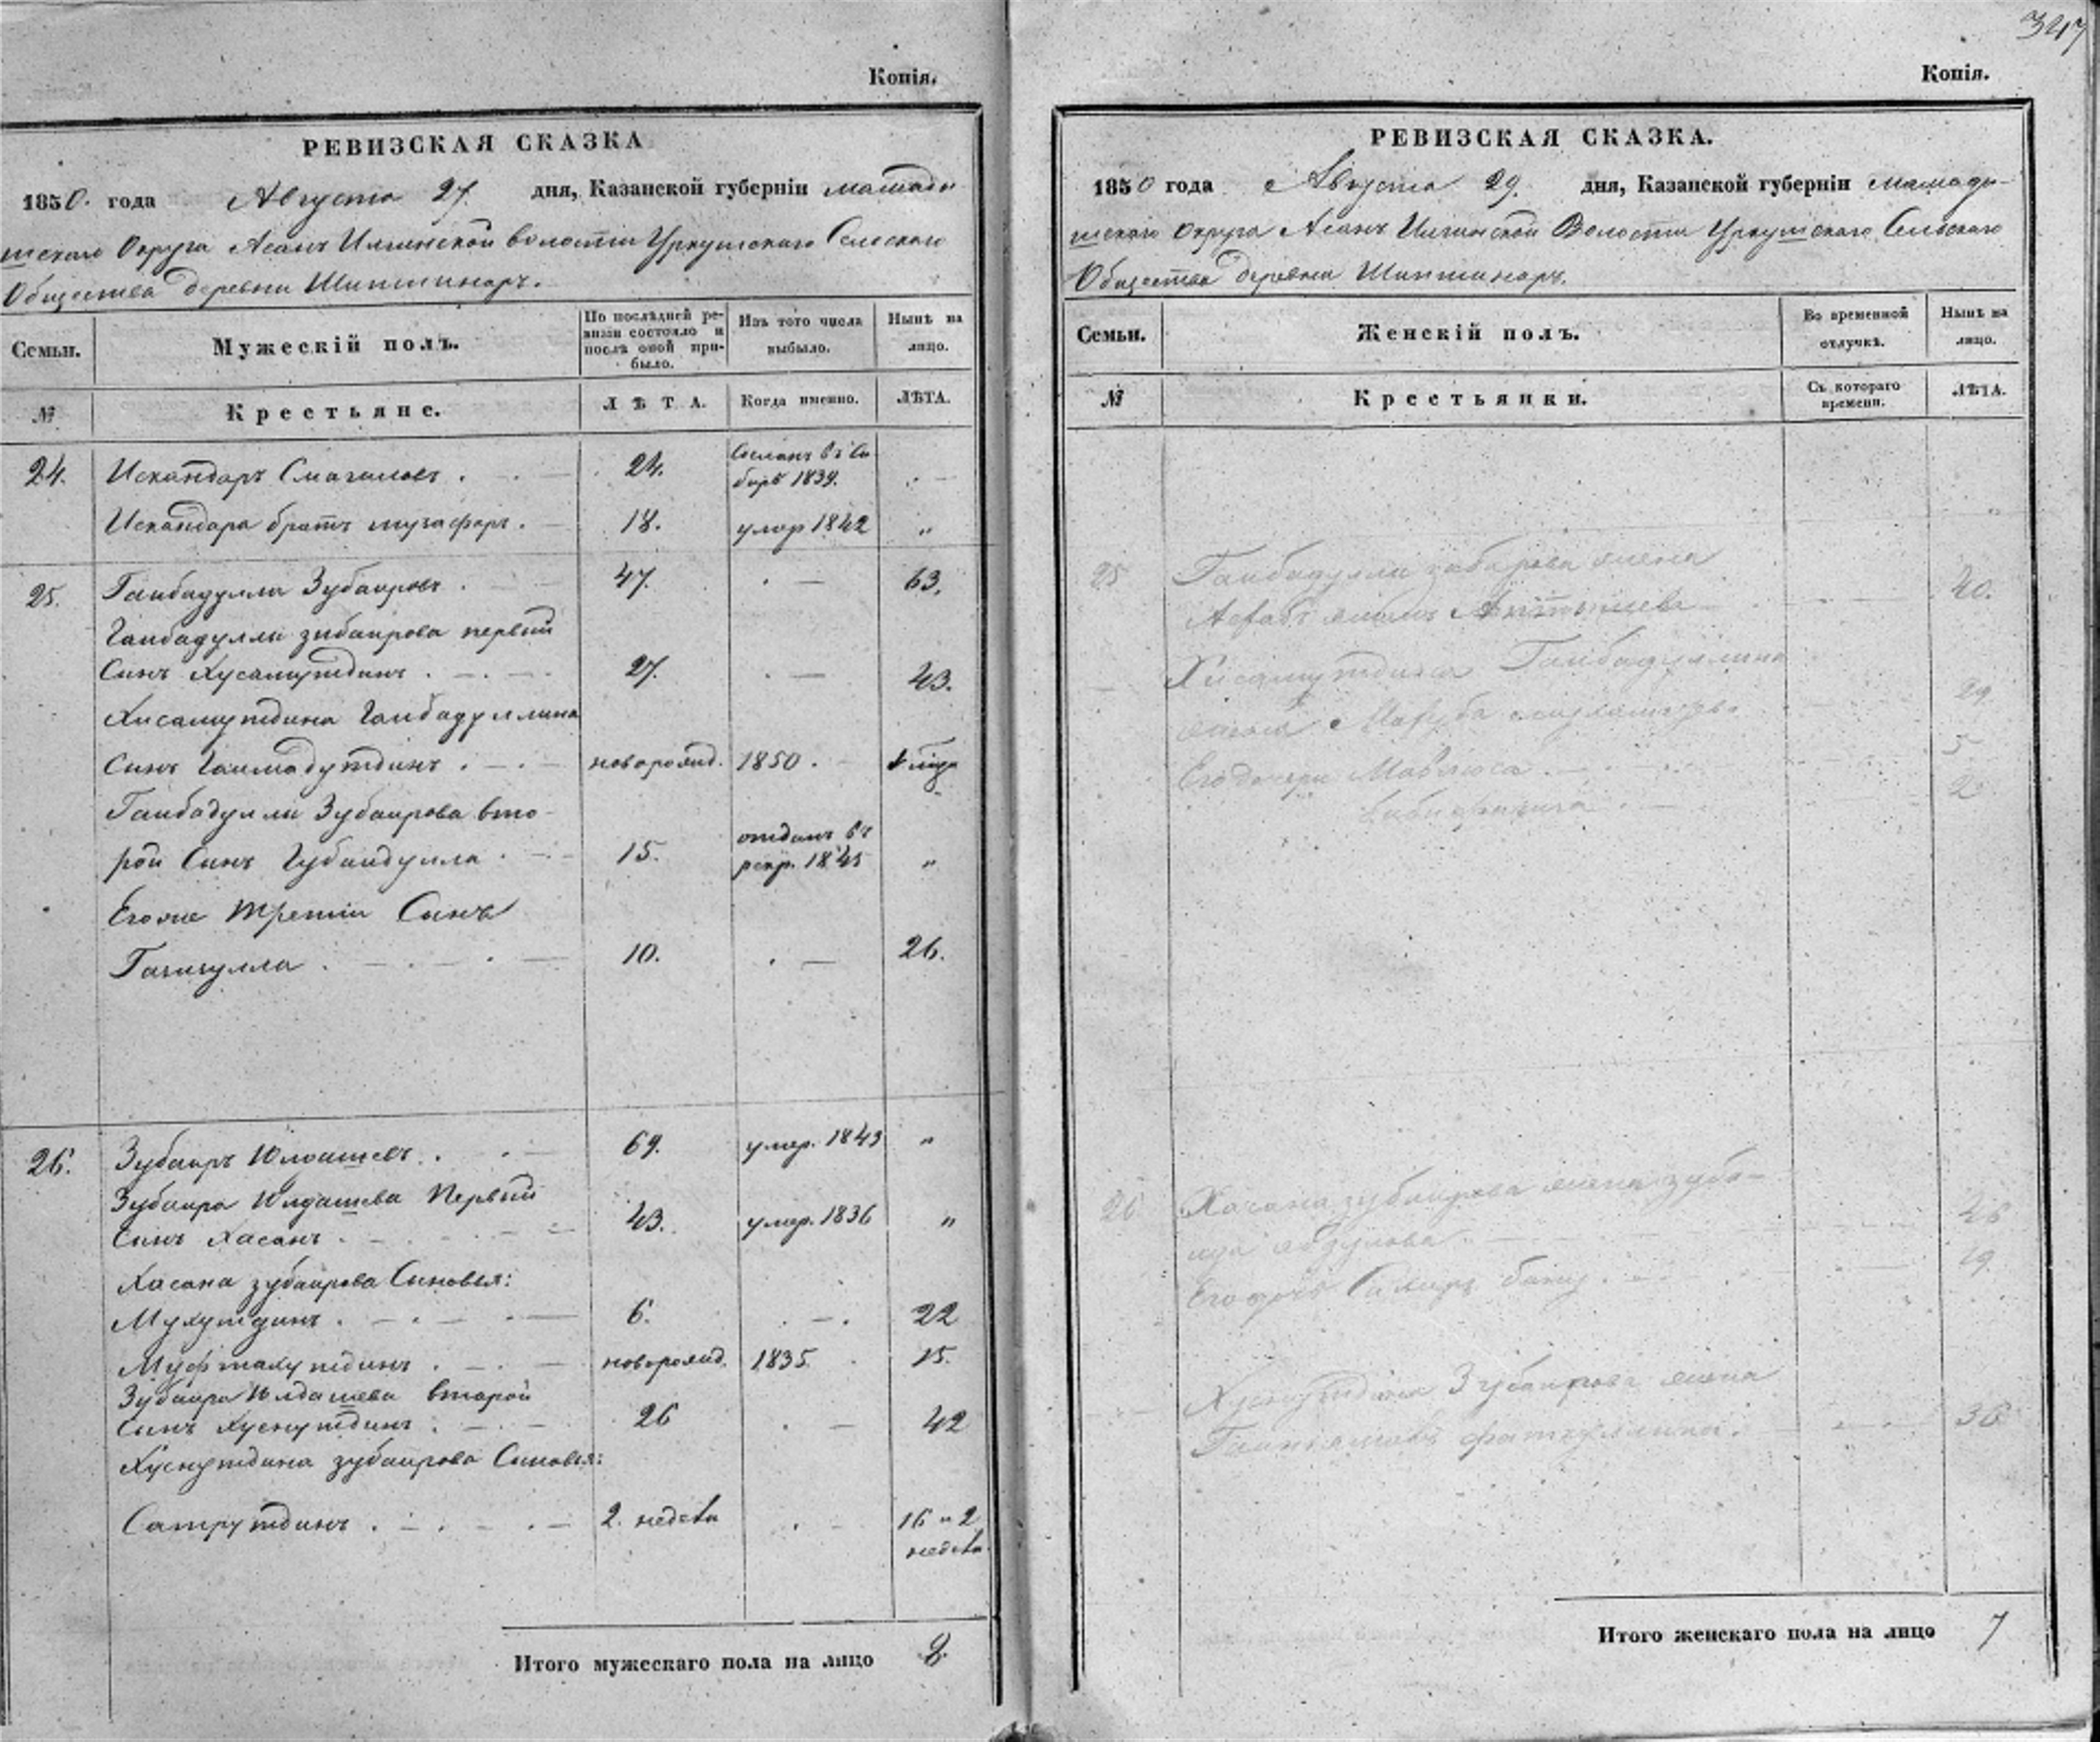 Копія.
РЕВИЗСКАЯ СКАЗКА
1850. года Августа 27. дня, Казанской губерніи Мамады
шскаго Округа Асанъ Илгинской волости Уркушскаго Сельскаго
Общества деревни Шипшинаръ.
Семьи. Мужескій полъ. По послѣдней ревизіи состояло и послѣ оной прибыло. Изъ того числа выбыло. Нынѣ на лицо.
№ Крестьяне. ЛѢТА. Когда именно. ЛѢТА.
24. Искандаръ Смагиловъ . — 24. Сосланъ въ Си
бирь 1839. . —
Искандара братъ Музафаръ . — 18. умер 1842 "
25. Гаибадулла Зубаировъ . 47. . — 63.
Гаибадуллы Зубаирова первый
Сынъ Хусамутдинъ . — . — 27. . — 43.
Хисамутдина Гаибадуллина
Сынъ . — . — новорожд. 1850 .
Гаибадуллы Зубаирова вто-
рой Сынъ Губайдулла . — 15. отданъ въ
рекр. 1845 "
Егоже третій Сынъ
10. . — 26.
26. Зубаиръ Юлдашевъ . . — 69. умер. 1843 "
Зубаира Юлдашева Первый
Сынъ Хасанъ . — 43. умер. 1836 "
Хасана Зубаирова Сыновья:
Мухутдинъ . — . — . — 6. . — . 22
Муфтахутдинъ . — . — новорожд. 1835. . 15.
Зубаира Юлдашева второй
Сынъ Хуснутдинъ . — . — 26 . — 42
Хуснутдина Зубаирова Сыновья:
. — . — . — 2. недели . — 16 и 2
недели.
Итого мужескаго пола на лицо 8.
347
Копія.
РЕВИЗСКАЯ СКАЗКА.
1850 года Августа 29. дня, Казанской губерніи Мамады-
шскаго Округа Асанъ Илгинской Волости Уркушскаго Сельскаго
Общества деревни Шипшинаръ.
Семьи. Женскій полъ. Во временной отлучкѣ. Нынѣ на лицо.
№ Крестьянки. Съ котораго времени. ЛѢТА.
25 Гаибадуллы Зубаирова жена
40.
Хисамутдина Гаибадуллина
жена 29
Его дочери 5
2
26 Хасана Зубаирова жена Зуба-
46
Его дочь 19.
Хуснутдина Зубаирова жена
36
Итого женскаго пола на лицо 7